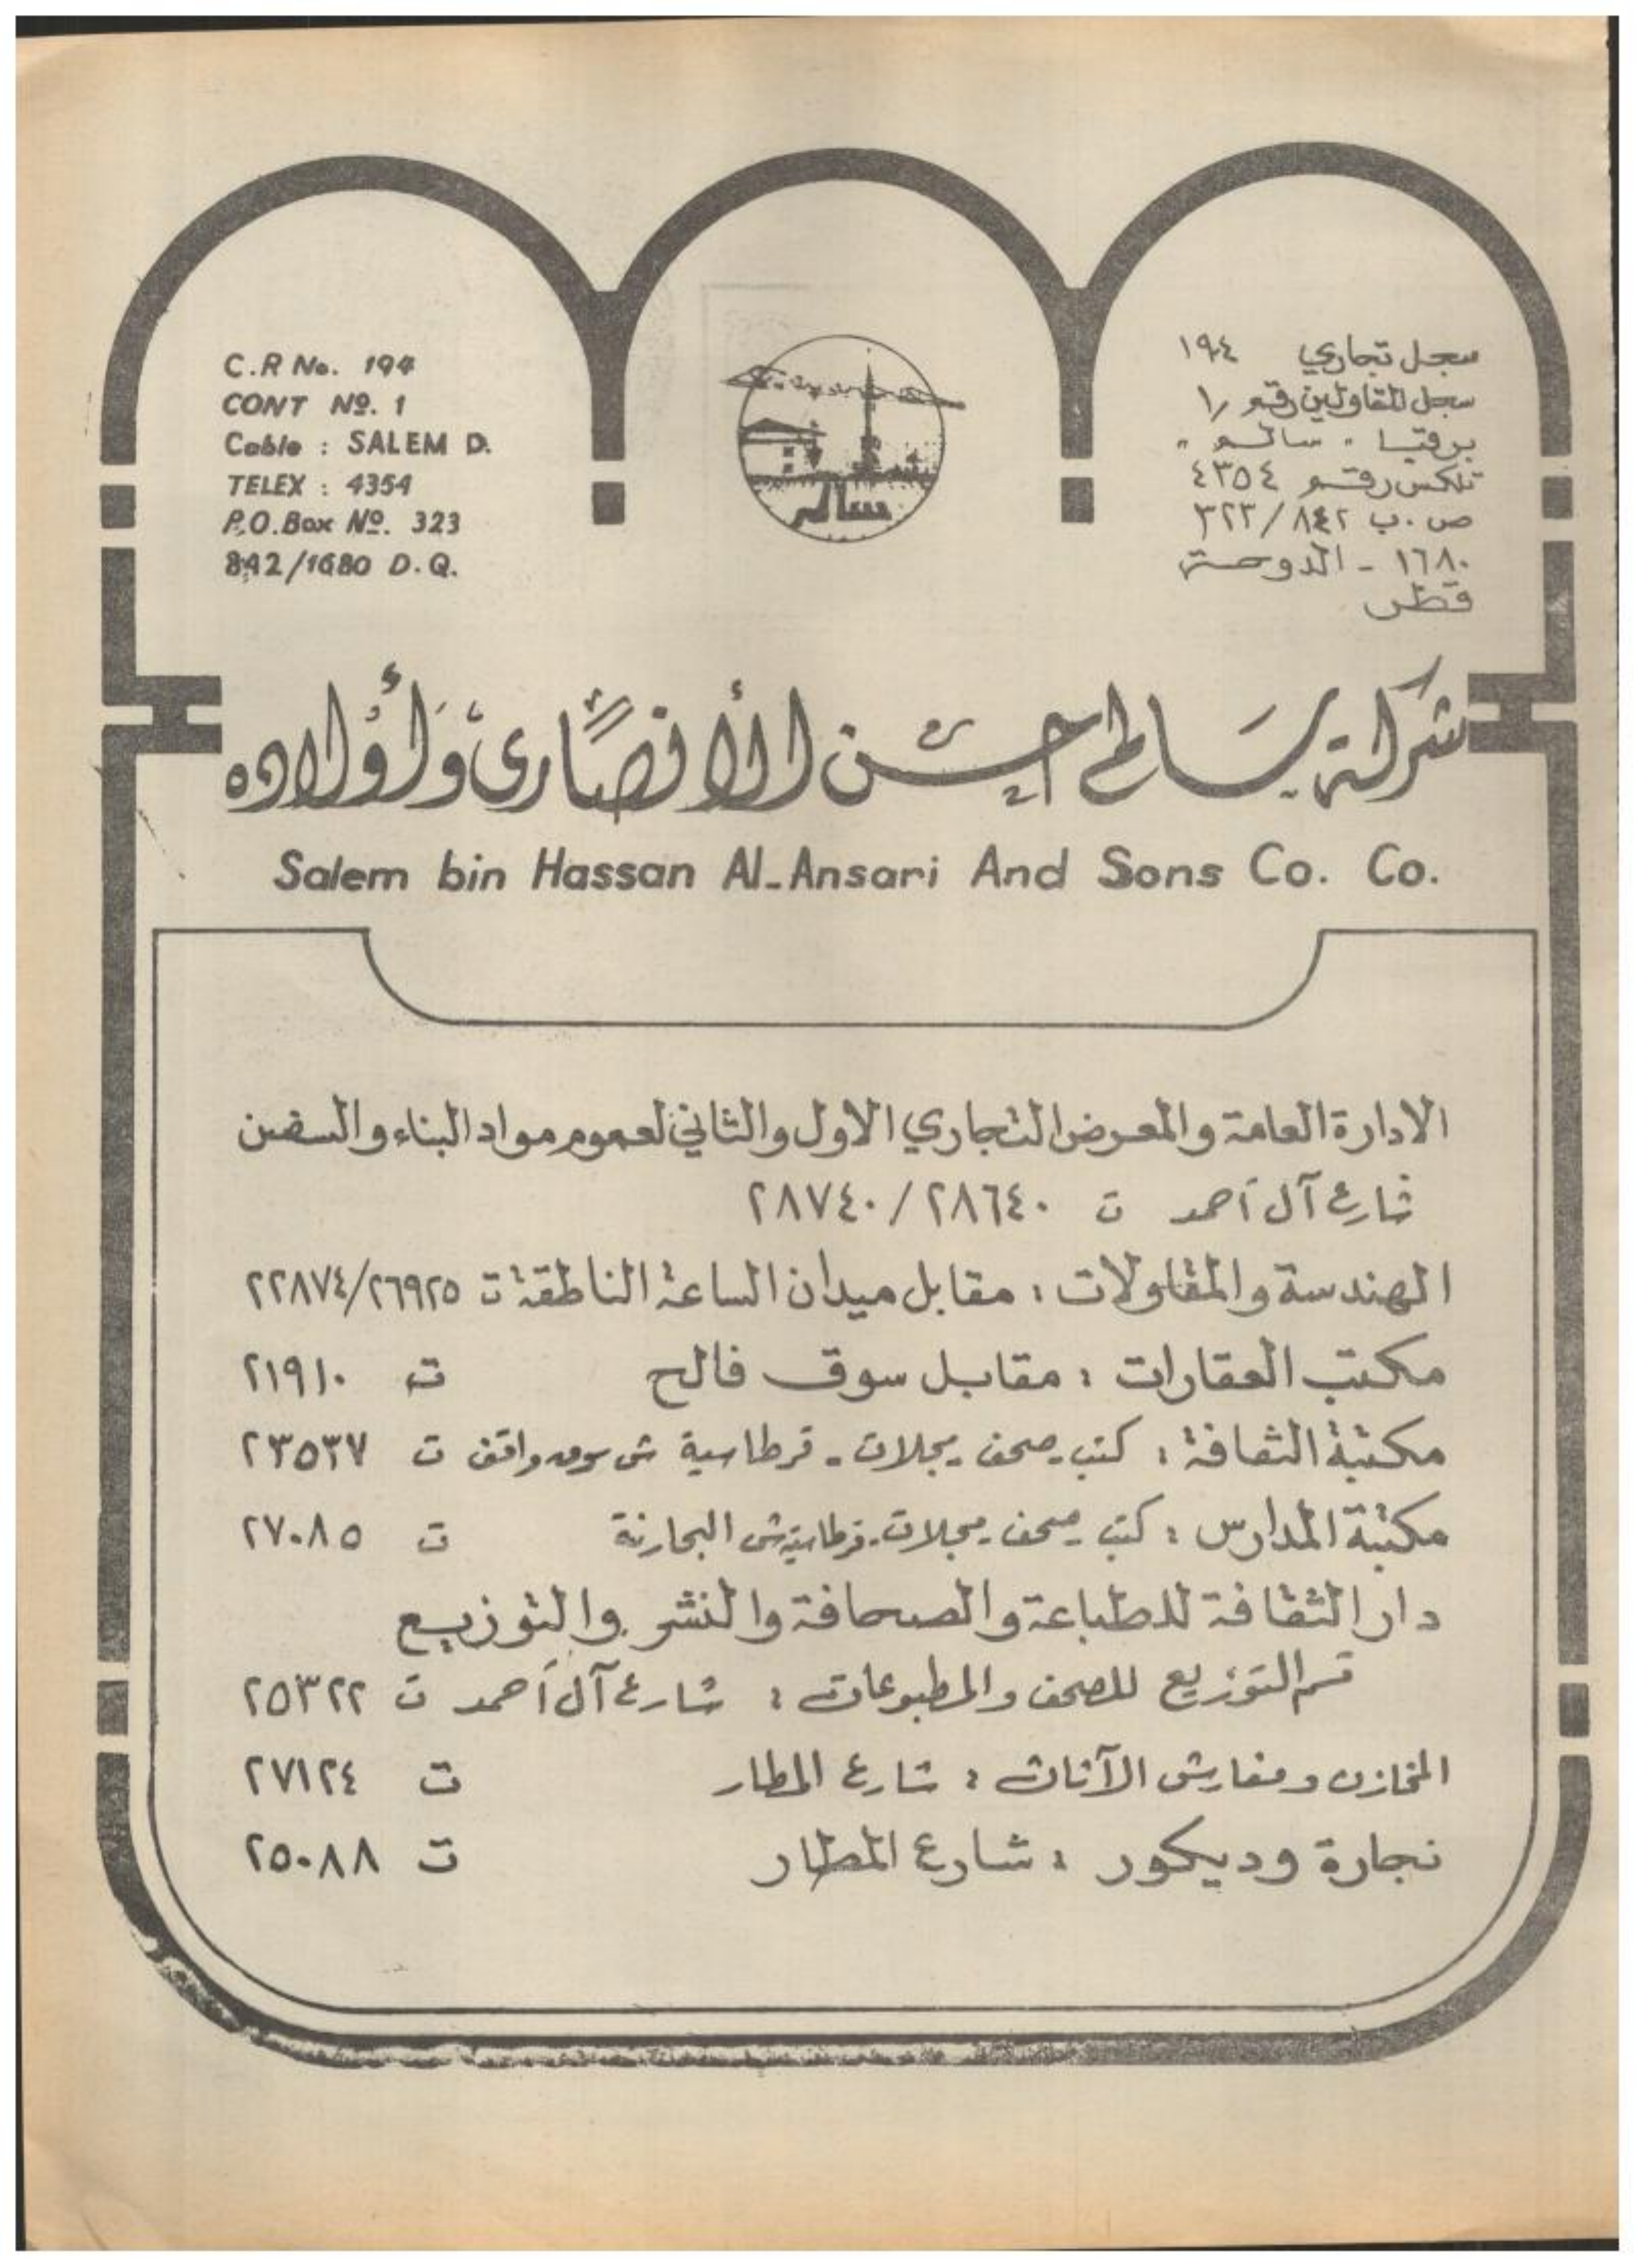 C.R No. 194
CONT Nº. 1
Cable : SALEM D.
TELEX : 4354
P.O.Box Nº. 323
842/1680 D.Q.
سالم
سجل تجاري ١٩٤
سجل المقاولين رقم /١
برقيا " سالم "
تلكس رقم ٤٣٥٤
ص . ب ٣٢٣/٨٤٢
١٦٨٠ - الدوحة
قطر
شركة سالم حسن الأنصاري وأولاده
Salem bin Hassan Al-Ansari And Sons Co. Co.
الادارة العامة والمعرض التجاري الاول والثاني لعموم مواد البناء والسفن
شارع آل أحمد ت ٢٨٦٤٠ / ٢٨٧٤٠
الهندسة والمقاولات : مقابل ميدان الساعة الناطقة ت ٢٢٨٧٤/٢٦٩٢٥
مكتب العقارات : مقابل سوق فالح ت ٢١٩١٠
مكتبة الثقافة : كتب - صحف - مجلات - قرطاسية ش سوق واقف ت ٢٣٥٣٧
مكتبة المدارس : كتب - صحف - مجلات - قرطاسية ش البحارنة ت ٢٧٠٨٥
دار الثقافة للطباعة والصحافة والنشر والتوزيع
قسم التوزيع للصحف والمطبوعات : شارع آل أحمد ت ٢٥٣٢٢
المخازن ومفارش الآثاث : شارع المطار ت ٢٧١٢٤
نجارة وديكور : شارع المطار ت ٢٥٠٨٨